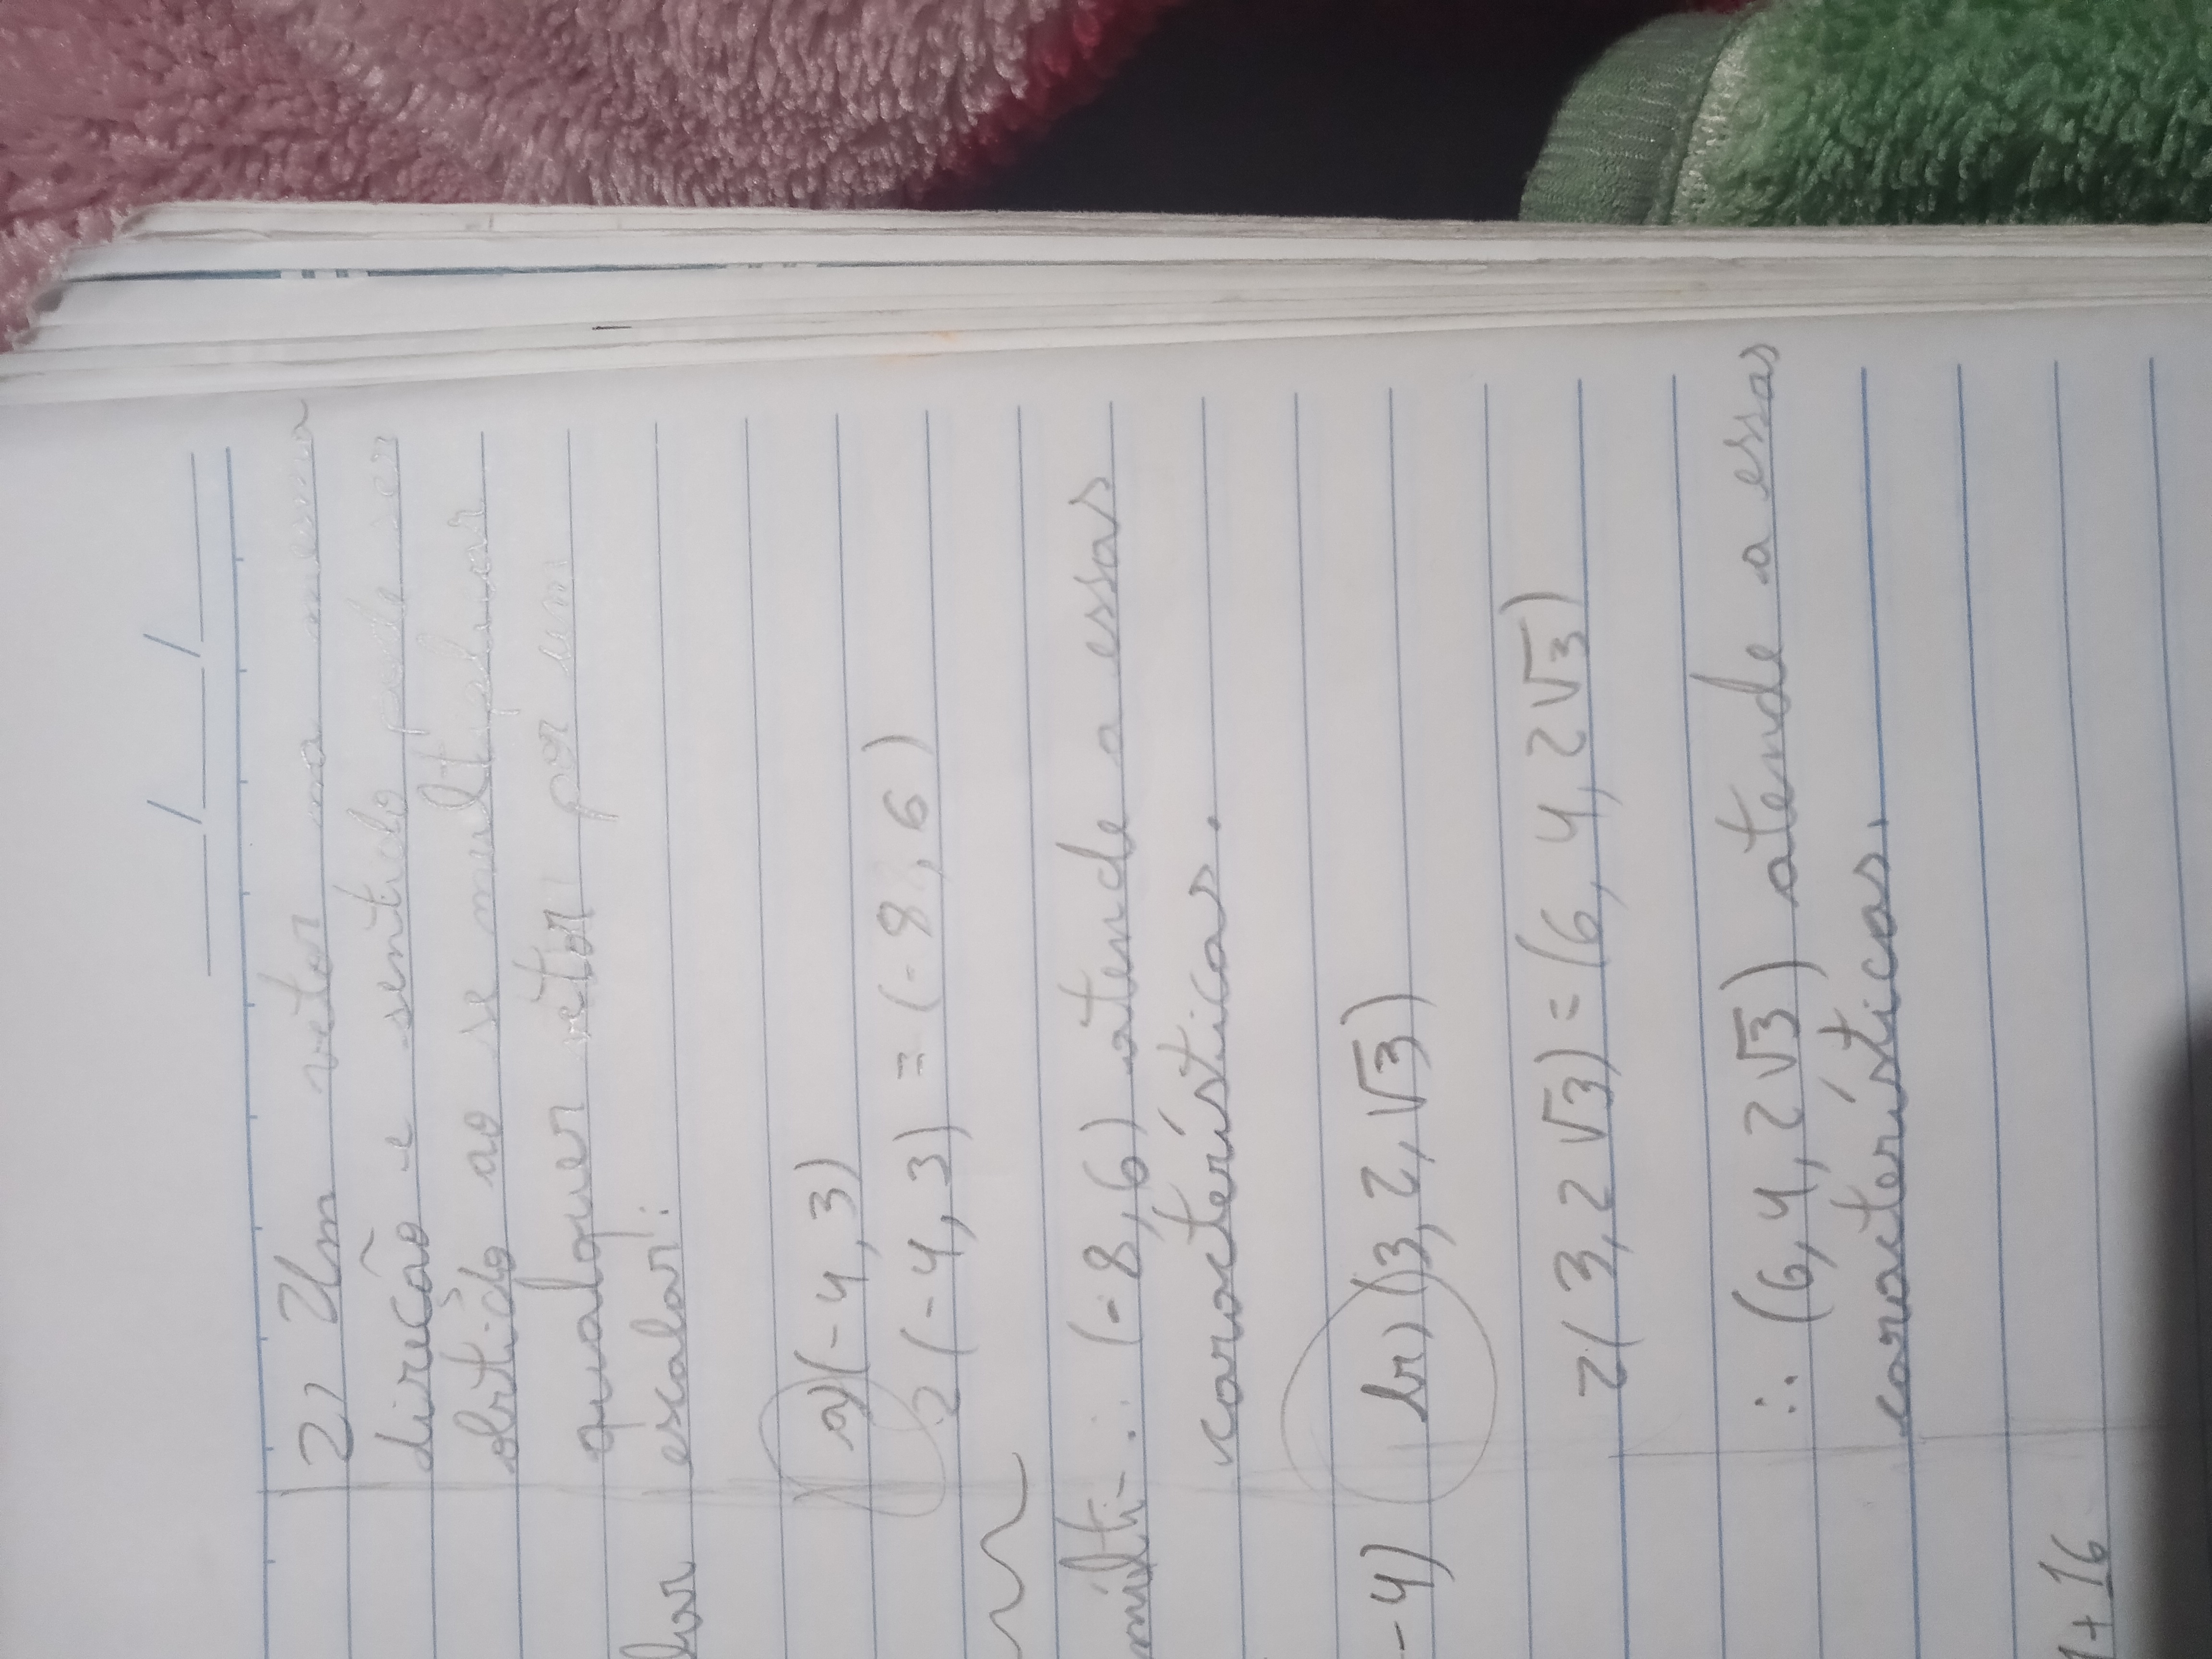 2) Um vetor na mesma
direção e sentido pode ser
obtido ao se multiplicar
qualquer vetor por um
lar escalar:
a) (-4, 3)
2(-4, 3) = (-8, 6)
múlti- ∴ (-8, 6) atende a essas
características.
-4) b) (3, 2, √3)
2( 3, 2 √3) = (6, 4, 2√3)
∴ (6, 4, 2√3) atende a essas
características.
1+16